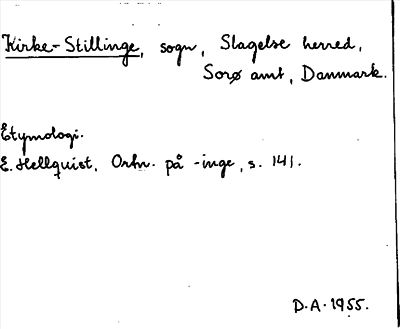 Kirke-Stillinge, sogn, Slagelse herred,
Sorø amt, Danmark.
Etymologi.
E. Hellquist, Ortn. på -inge, s. 141.
D.A. 1955.